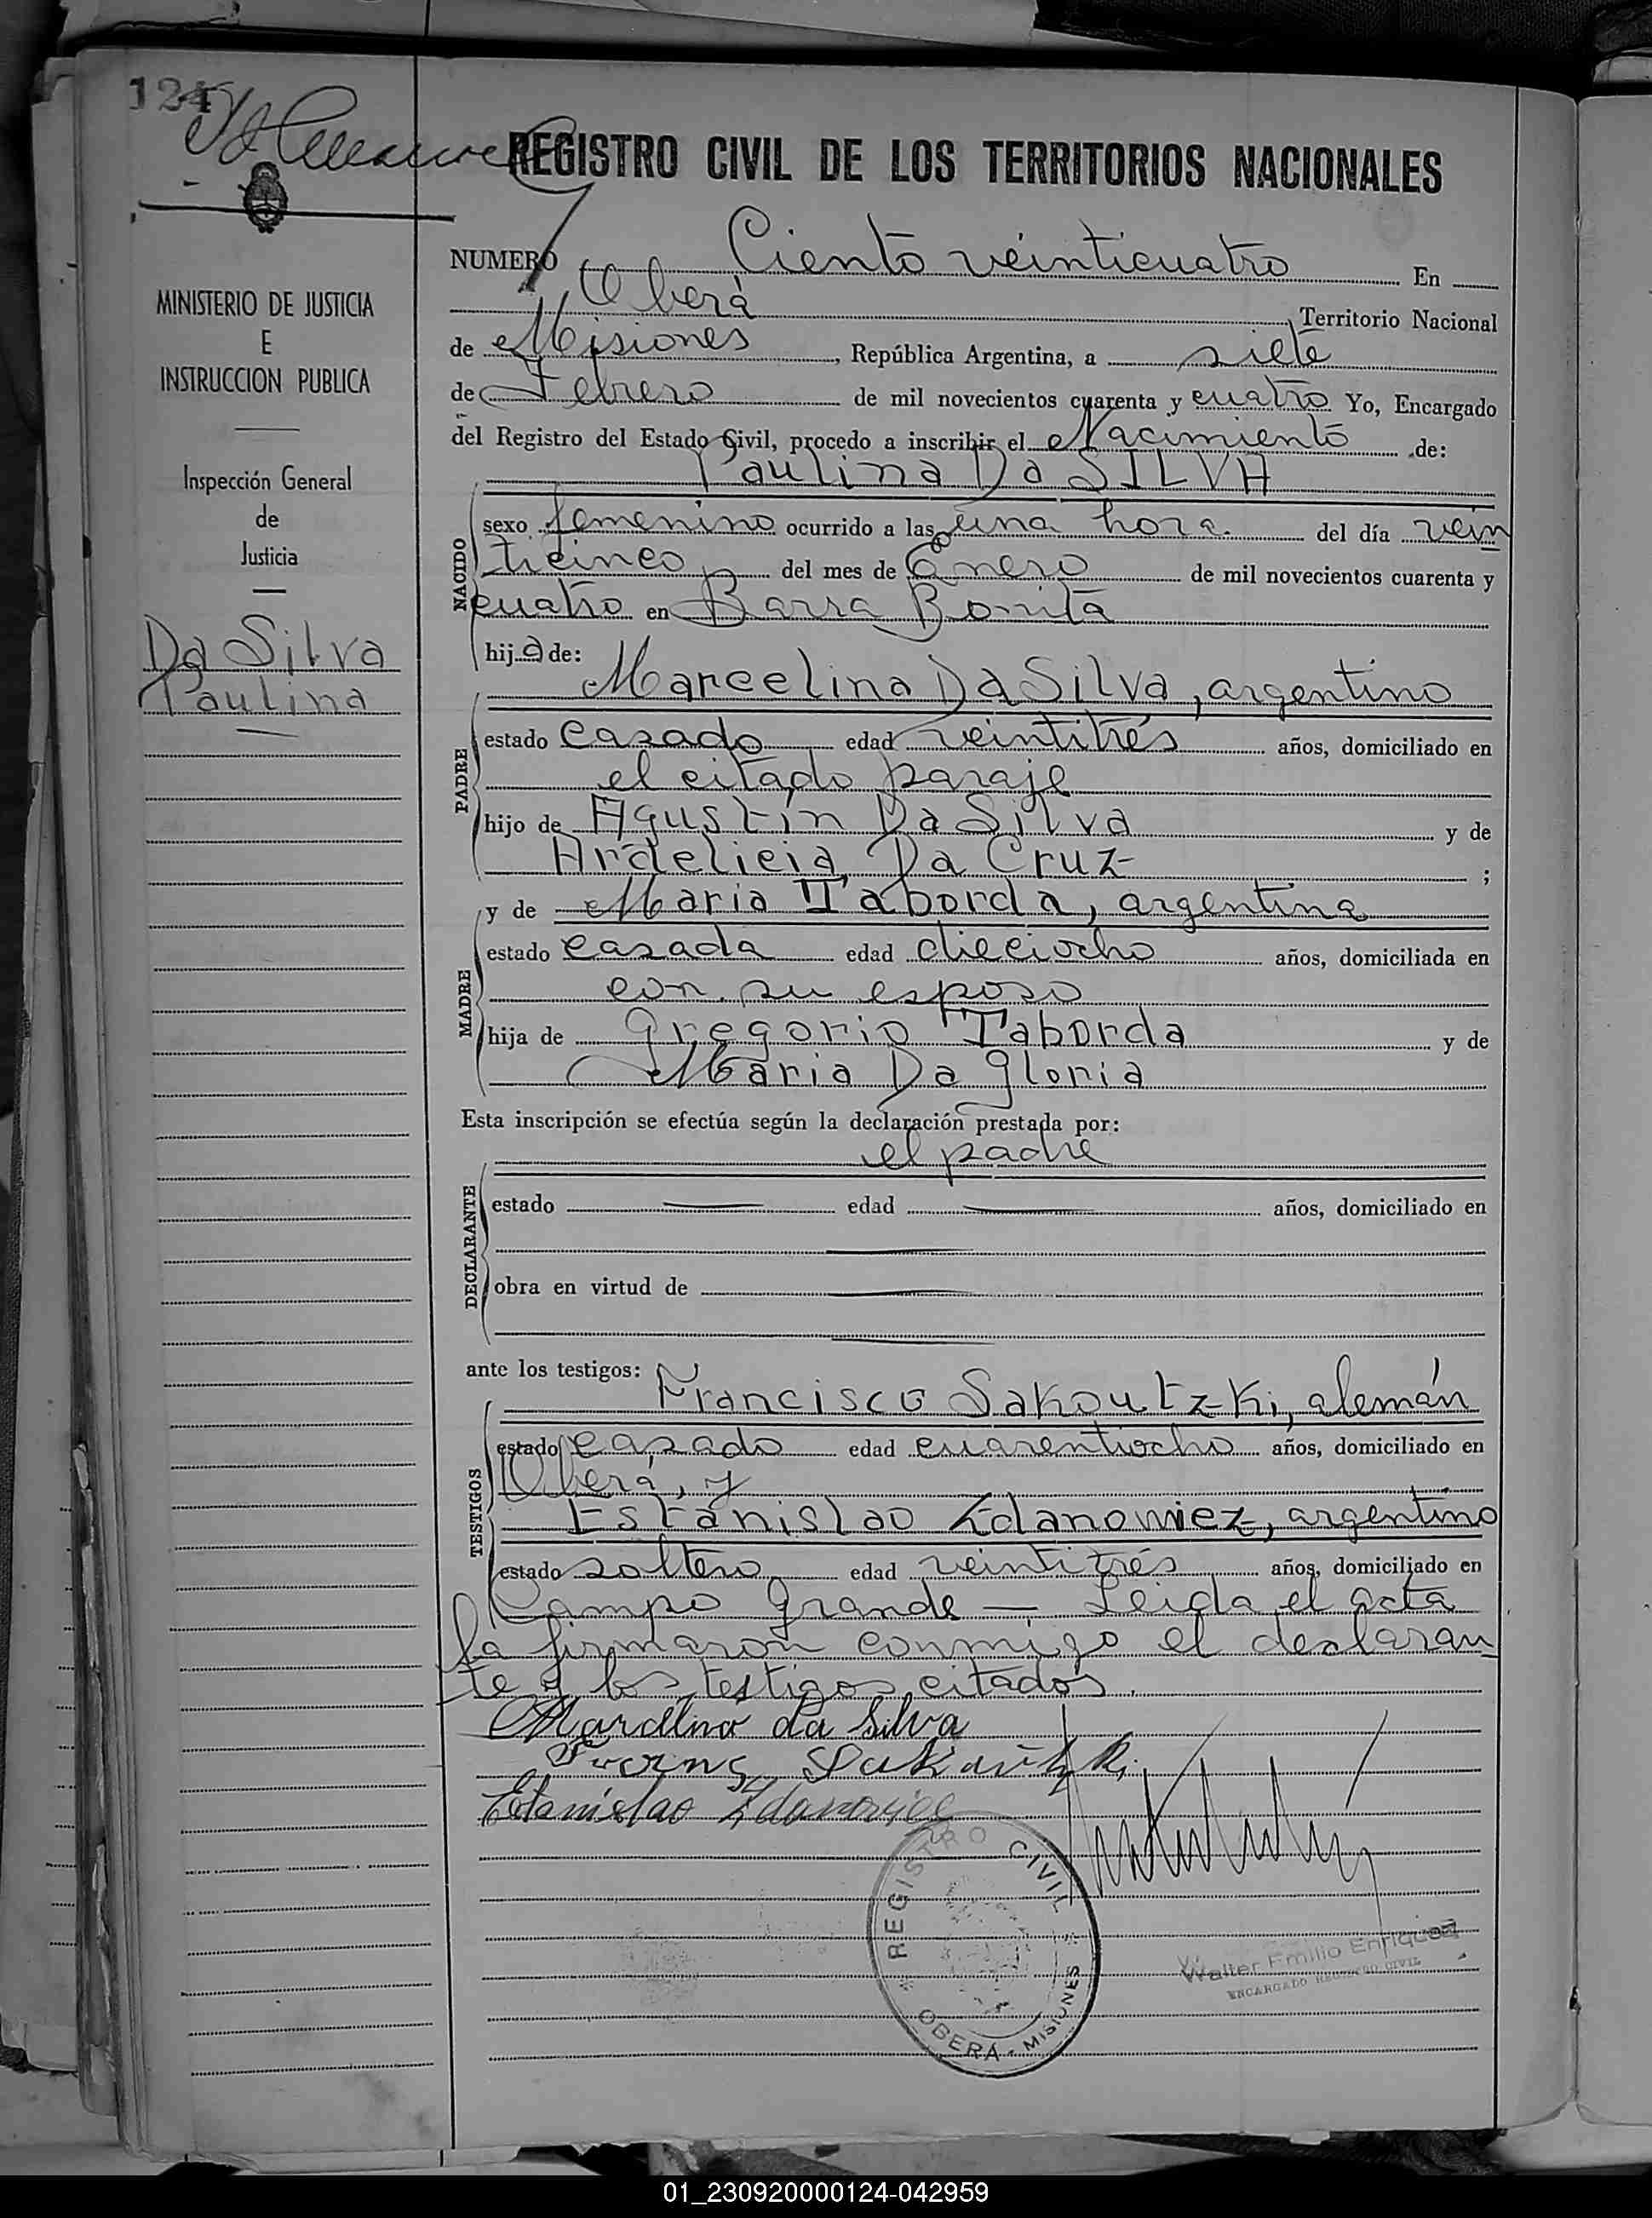 124
REGISTRO CIVIL DE LOS TERRITORIOS NACIONALES
MINISTERIO DE JUSTICIA
E
INSTRUCCION PUBLICA
Inspección General
de
Justicia
Da Silva
Paulina
NUMERO Ciento veinticuatro En
Oberá Territorio Nacional
de Misiones, República Argentina, a siete
de Febrero de mil novecientos cuarenta y cuatro Yo, Encargado
del Registro del Estado Civil, procedo a inscribir el Nacimiento de:
Paulina Da SILVA
NACIDO
sexo femenino ocurrido a las una hora. del día vein
ticinco del mes de Enero de mil novecientos cuarenta y
cuatro en Barra Bonita
hija de:
PADRE
Marcelino Da Silva, argentino
estado casado edad veintitrés años, domiciliado en
el citado paraje
hijo de Agustín Da Silva y de
Ardelicia Da Cruz ;
MADRE
y de Maria Taborda, argentina
estado casada edad dieciocho años, domiciliada en
con su esposo
hija de Gregorio Taborda y de
Maria Da Gloria
Esta inscripción se efectúa según la declaración prestada por:
el padre
DECLARANTE
estado edad años, domiciliado en
obra en virtud de
ante los testigos:
TESTIGOS
Francisco Sakoutzki, alemán
estado casado edad cuarentiocho años, domiciliado en
Oberá, y
Estanislao Zdanowiez, argentino
estado soltero edad veintitrés años, domiciliado en
Campo Grande — Leida el acta
la firmaron conmigo el declaran
te y los testigos citados.
Marcelino da Silva
Estanislao
REGISTRO CIVIL
OBERÁ - MISIONES
Walter Emilio Enriquez
ENCARGADO REGISTRO CIVIL
01_230920000124-042959